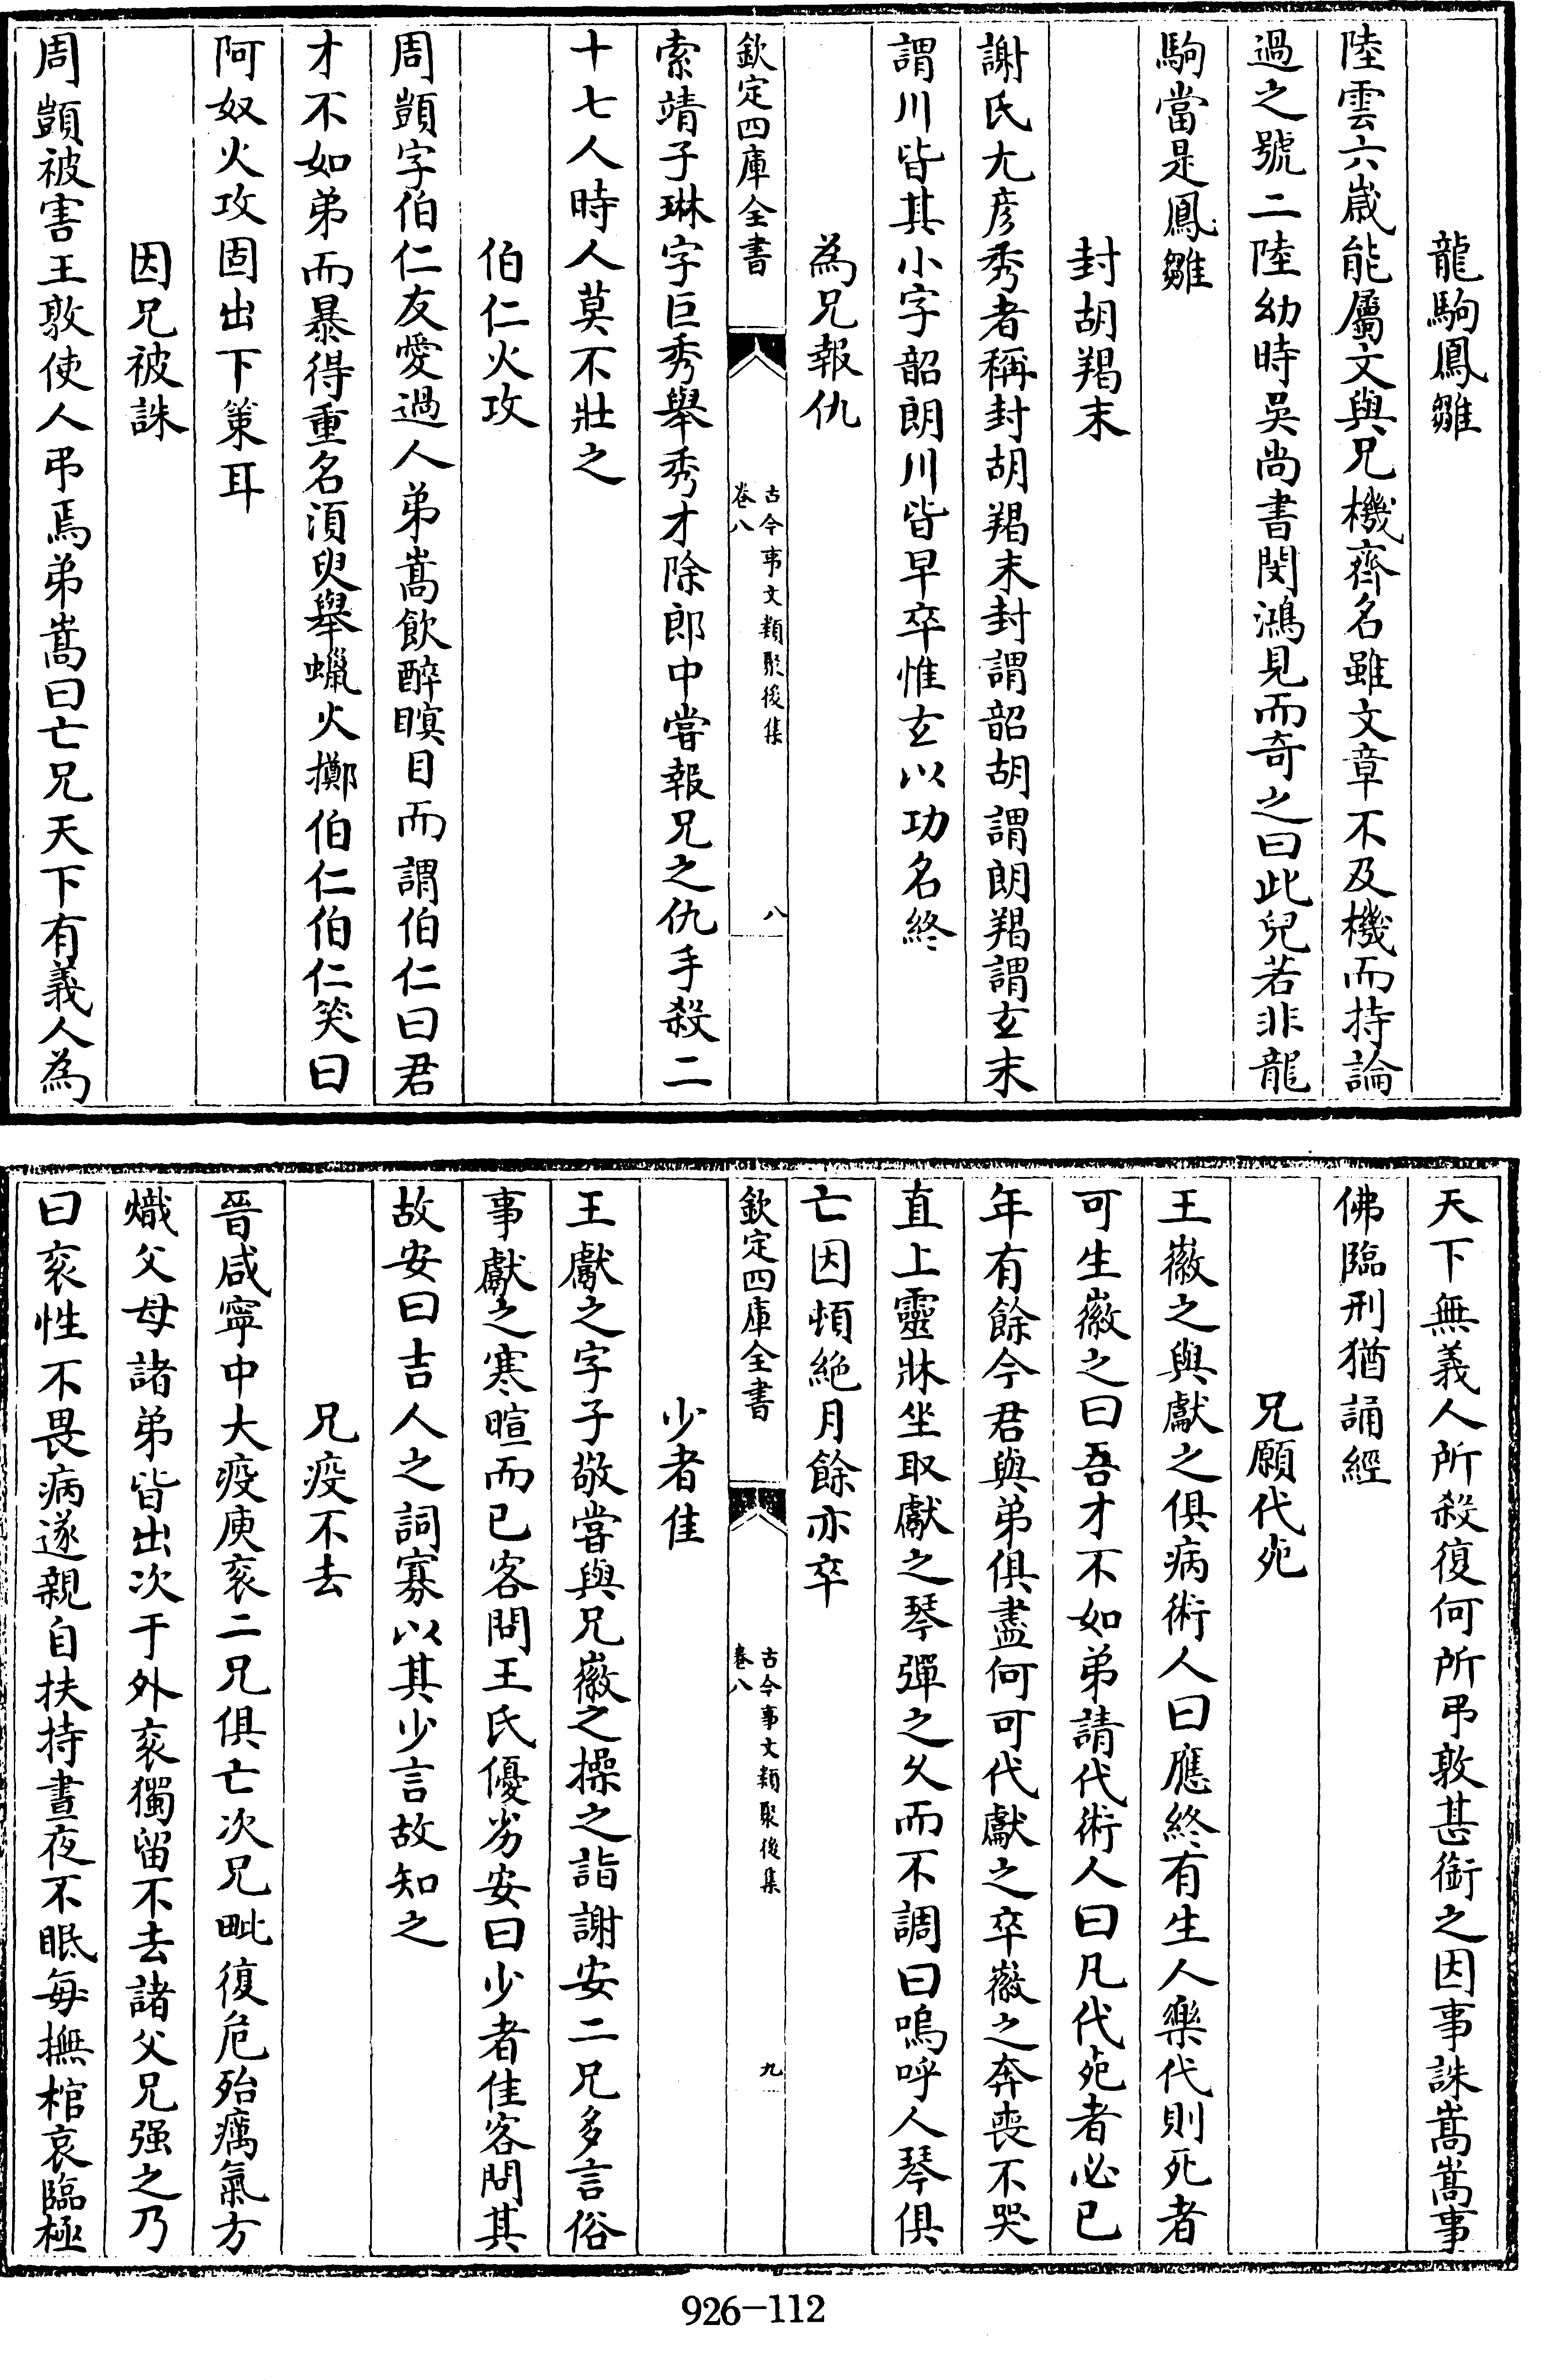 龍駒鳳雛
陸雲六嵗能屬文與兄機齊名雖文章不及機而持論
過之號二陸幼時吳尚書閔鴻見而奇之曰此兒若非龍
駒當是鳳雛
封胡羯末
謝氏尤彦秀者稱封胡羯末封謂韶胡謂朗羯謂玄末
謂川皆其小字韶朗川皆早卒惟玄以功名終
為兄報仇
欽定四庫全書
古今事文類聚後集
卷八
八
索靖子琳字巨秀舉秀才除郎中嘗報兄之仇手殺二
十七人時人莫不壯之
伯仁火攻
周顗字伯仁友愛過人弟嵩飲醉瞋目而謂伯仁曰君
才不如弟而暴得重名須臾舉蠟火擲伯仁伯仁笑曰
阿奴火攻固出下策耳
因兄被誅
周顗被害王敦使人弔焉弟嵩曰亡兄天下有義人為
天下無義人所殺復何所弔敦甚銜之因事誅嵩嵩事
佛臨刑猶誦經
兄願代死
王徽之與獻之俱病術人曰應終有生人樂代則死者
可生徽之曰吾才不如弟請代術人曰凡代死者必已
年有餘今君與弟俱盡何可代獻之卒徽之奔喪不哭
直上靈牀坐取獻之琴彈之久而不調曰嗚呼人琴俱
亡因頓絶月餘亦卒
欽定四庫全書
古今事文類聚後集
卷八
九
少者佳
王獻之字子敬嘗與兄徽之操之詣謝安二兄多言俗
事獻之寒暄而已客問王氏優劣安曰少者佳客問其
故安曰吉人之詞寡以其少言故知之
兄疫不去
晉咸寧中大疫庾衮二兄俱亡次兄毗復危殆癘氣方
熾父母諸弟皆出次于外衮獨留不去諸父兄强之乃
曰衮性不畏病遂親自扶持晝夜不眠每撫棺哀臨極
926-112